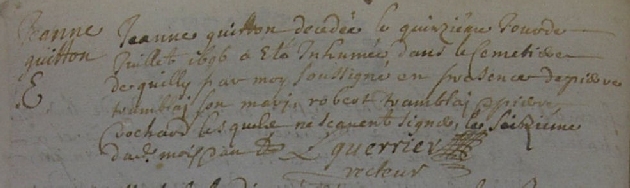 Jeanne guitton
E
Jeanne guitton decedée le quinzieme Jour de
Juillet 1696 a Eté Inhumée dans le Cemetiere
de quilly par moy soussigné en presence de pierre
tramblaj son mary, robert tramblaj pierre
Cochard lesquels ne scavent signer le seizieme
dud. mois an
L guerrier
recteur